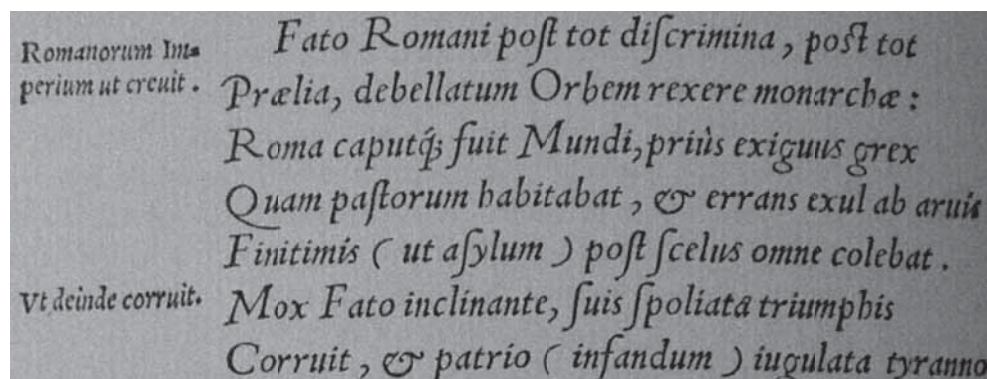 Romanorum Im⸗
perium ut creuit.
Fato Romani poſt tot diſcrimina, poſt tot
Prælia, debellatum Orbem rexere monarchæ:
Roma caputq́; fuit Mundi, priùs exiguus grex
Quam paſtorum habitabat, & errans exul ab aruis
Finitimis ( ut aſylum ) poſt ſcelus omne colebat.
Vt deinde corruit.
Mox Fato inclinante, ſuis ſpoliata triumphis
Corruit, & patrio ( infandum ) iugulata tyranno